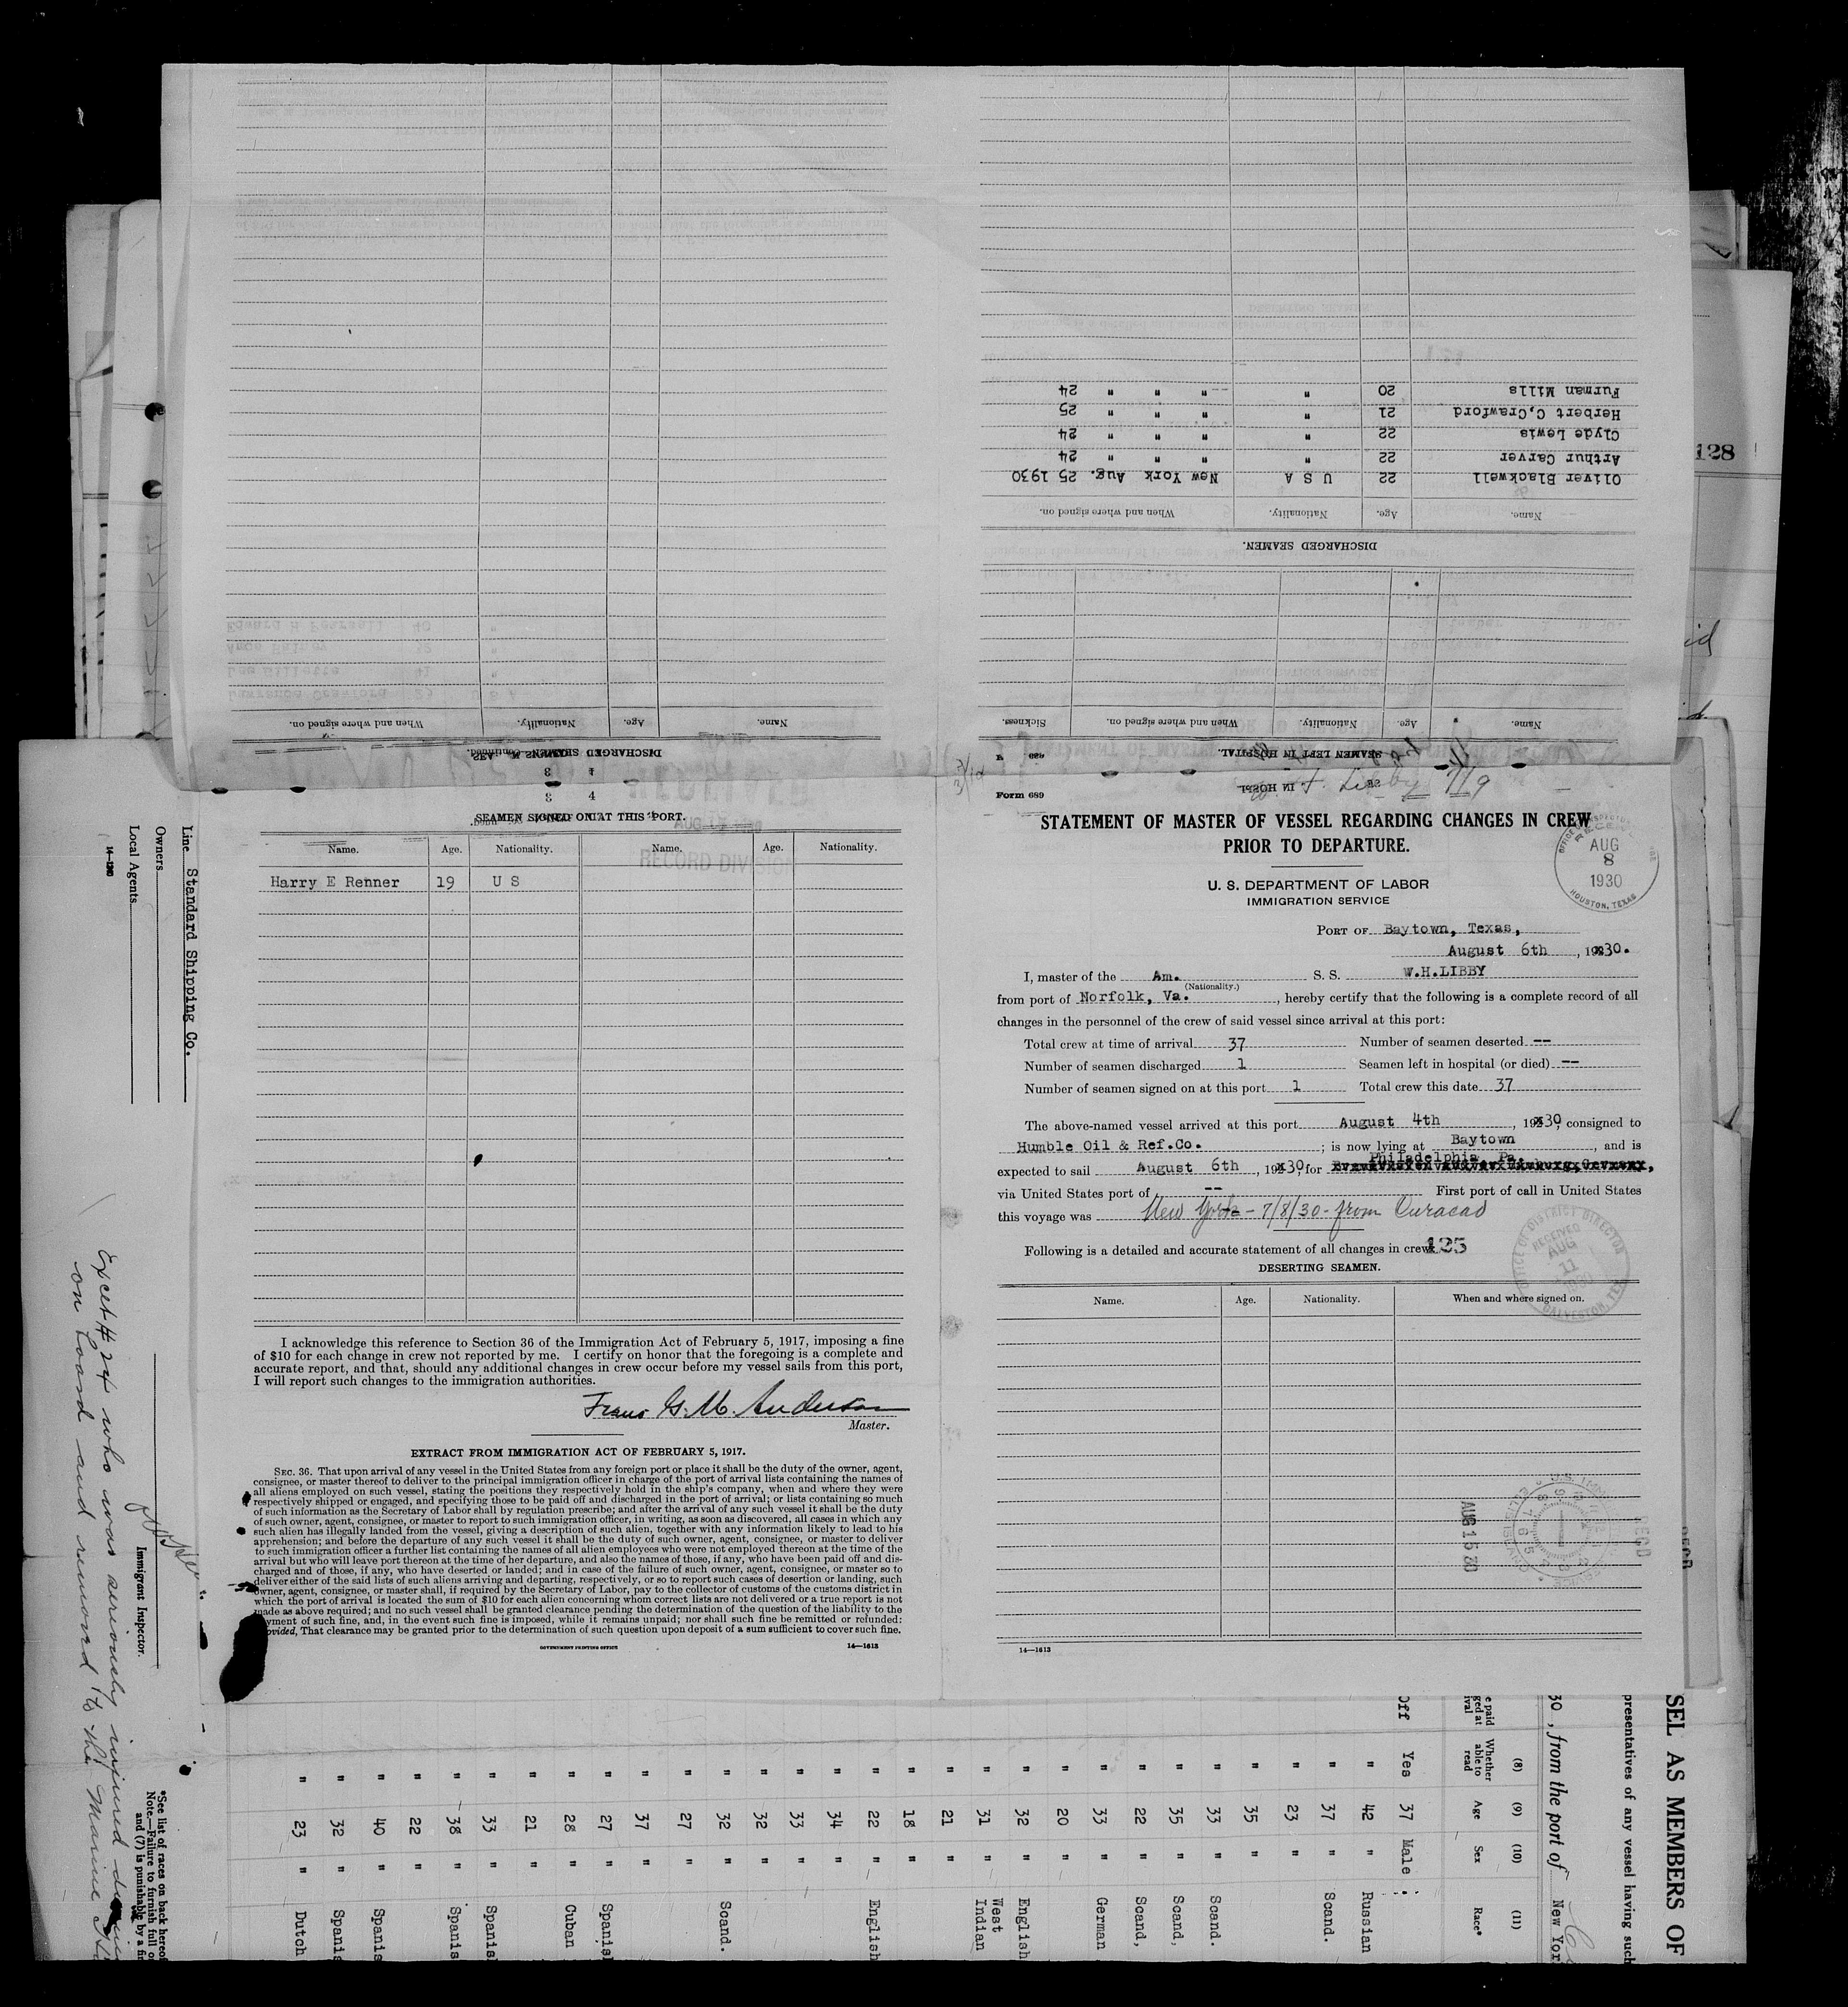 Furman Mills 20 " " " " 24
Herbert C,Crawford 21 " " " " 25
Clyde Lewis 22 " " " " 24
Arthur Carver 22 " " " " 24
Oliver Blackwell 22 U S A New York Aug. 25 1930
Name. Age. Nationality. When and where signed on.
DISCHARGED SEAMEN.
Name. Age. Nationality. When and where signed on. Sickness.
SEAMEN LEFT IN HOSPITAL.
Name. Age. Nationality. When and where signed on.
DISCHARGED SEAMEN
128
3 4
SEAMEN SIGNED ON AT THIS PORT.
RECORD DIVISION
Name. Age. Nationality. Name. Age. Nationality.
Harry E Renner 19 U S
I acknowledge this reference to Section 36 of the Immigration Act of February 5, 1917, imposing a fine
of $10 for each change in crew not reported by me. I certify on honor that the foregoing is a complete and
accurate report, and that, should any additional changes in crew occur before my vessel sails from this port,
I will report such changes to the immigration authorities.
Frans G. M. Anderson
Master.
EXTRACT FROM IMMIGRATION ACT OF FEBRUARY 5, 1917.
SEC. 36. That upon arrival of any vessel in the United States from any foreign port or place it shall be the duty of the owner, agent,
consignee, or master thereof to deliver to the principal immigration officer in charge of the port of arrival lists containing the names of
all aliens employed on such vessel, stating the positions they respectively hold in the ship's company, when and where they were
respectively shipped or engaged, and specifying those to be paid off and discharged in the port of arrival; or lists containing so much
of such information as the Secretary of Labor shall by regulation prescribe; and after the arrival of any such vessel it shall be the duty
of such owner, agent, consignee, or master to report to such immigration officer, in writing, as soon as discovered, all cases in which any
such alien has illegally landed from the vessel, giving a description of such alien, together with any information likely to lead to his
apprehension; and before the departure of any such vessel it shall be the duty of such owner, agent, consignee, or master to deliver
to such immigration officer a further list containing the names of all alien employees who were not employed thereon at the time of the
arrival but who will leave port thereon at the time of her departure, and also the names of those, if any, who have been paid off and dis-
charged and of those, if any, who have deserted or landed; and in case of the failure of such owner, agent, consignee, or master so to
deliver either of the said lists of such aliens arriving and departing, respectively, or so to report such cases of desertion or landing, such
owner, agent, consignee, or master shall, if required by the Secretary of Labor, pay to the collector of customs of the customs district in
which the port of arrival is located the sum of $10 for each alien concerning whom correct lists are not delivered or a true report is not
made as above required; and no such vessel shall be granted clearance pending the determination of the question of the liability to the
yment of such fine, and, in the event such fine is imposed, while it remains unpaid; nor shall such fine be remitted or refunded:
ovided, That clearance may be granted prior to the determination of such question upon deposit of a sum sufficient to cover such fine.
GOVERNMENT PRINTING OFFICE 14—1613
Form 689
Libby 7/9
STATEMENT OF MASTER OF VESSEL REGARDING CHANGES IN CREW
PRIOR TO DEPARTURE.
AUG 8 1930
HOUSTON, TEXAS
U. S. DEPARTMENT OF LABOR
IMMIGRATION SERVICE
PORT OF Baytown, Texas,
August 6th , 1930.
I, master of the Am. S. S. W.H.LIBBY
(Nationality.)
from port of Norfolk, Va. , hereby certify that the following is a complete record of all
changes in the personnel of the crew of said vessel since arrival at this port:
Total crew at time of arrival 37 Number of seamen deserted --
Number of seamen discharged 1 Seamen left in hospital (or died) --
Number of seamen signed on at this port 1 Total crew this date 37
The above-named vessel arrived at this port August 4th , 1930, consigned to
Humble Oil & Ref.Co. ; is now lying at Baytown , and is
expected to sail August 6th , 1930, for Philadelphia Pa.
via United States port of -- First port of call in United States
this voyage was New York - 7/8/30 - from Curacao
Following is a detailed and accurate statement of all changes in crew: 125
DESERTING SEAMEN.
OFFICE OF DISTRICT DIRECTOR
RECEIVED
AUG
11
GALVESTON, TEX
Name. Age. Nationality. When and where signed on.
AUG 15 30
RECD
14—1613
Line Standard Shipping Co.
Owners
Local Agents
14-1240
Immigrant Inspector.
Except # 24 who was seriously injured
on board and removed to the Marine
*See list of races on back hereof
Note.—Failure to furnish full o
and (7) is punishable by a fi
SEL AS MEMBERS OF
presentatives of any vessel having such
30 , from the port of New Yor
(8) (9) (10) (11)
e paid
ged at
ival
Whether
able to
read
Age
Sex
Race*
Off Yes 37 Male
" 42 " Russian
" 37 " Scand.
" 23 "
" 35 "
" 33 " Scand.
" 35 " Scand,
" 22 " Scand,
" 33 " German
" 20 "
" 32 " English
" 31 " West Indian
" 21 "
" 18 "
" 22 " English
" 34 "
" 33 "
" 32 "
" 32 " Scand.
" 27 "
" 37 "
" 27 " Spanis
" 28 " Cuban
" 21 "
" 33 " Spanis
" 38 " Spanis
" 22 "
" 40 " Spanis
" 32 " Spanis
" 23 " Dutch